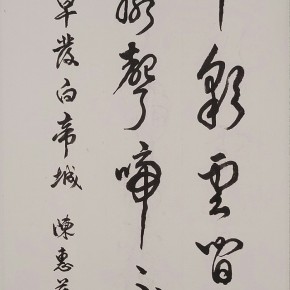 彩雲間
聲啼不
早發白帝城 陳惠